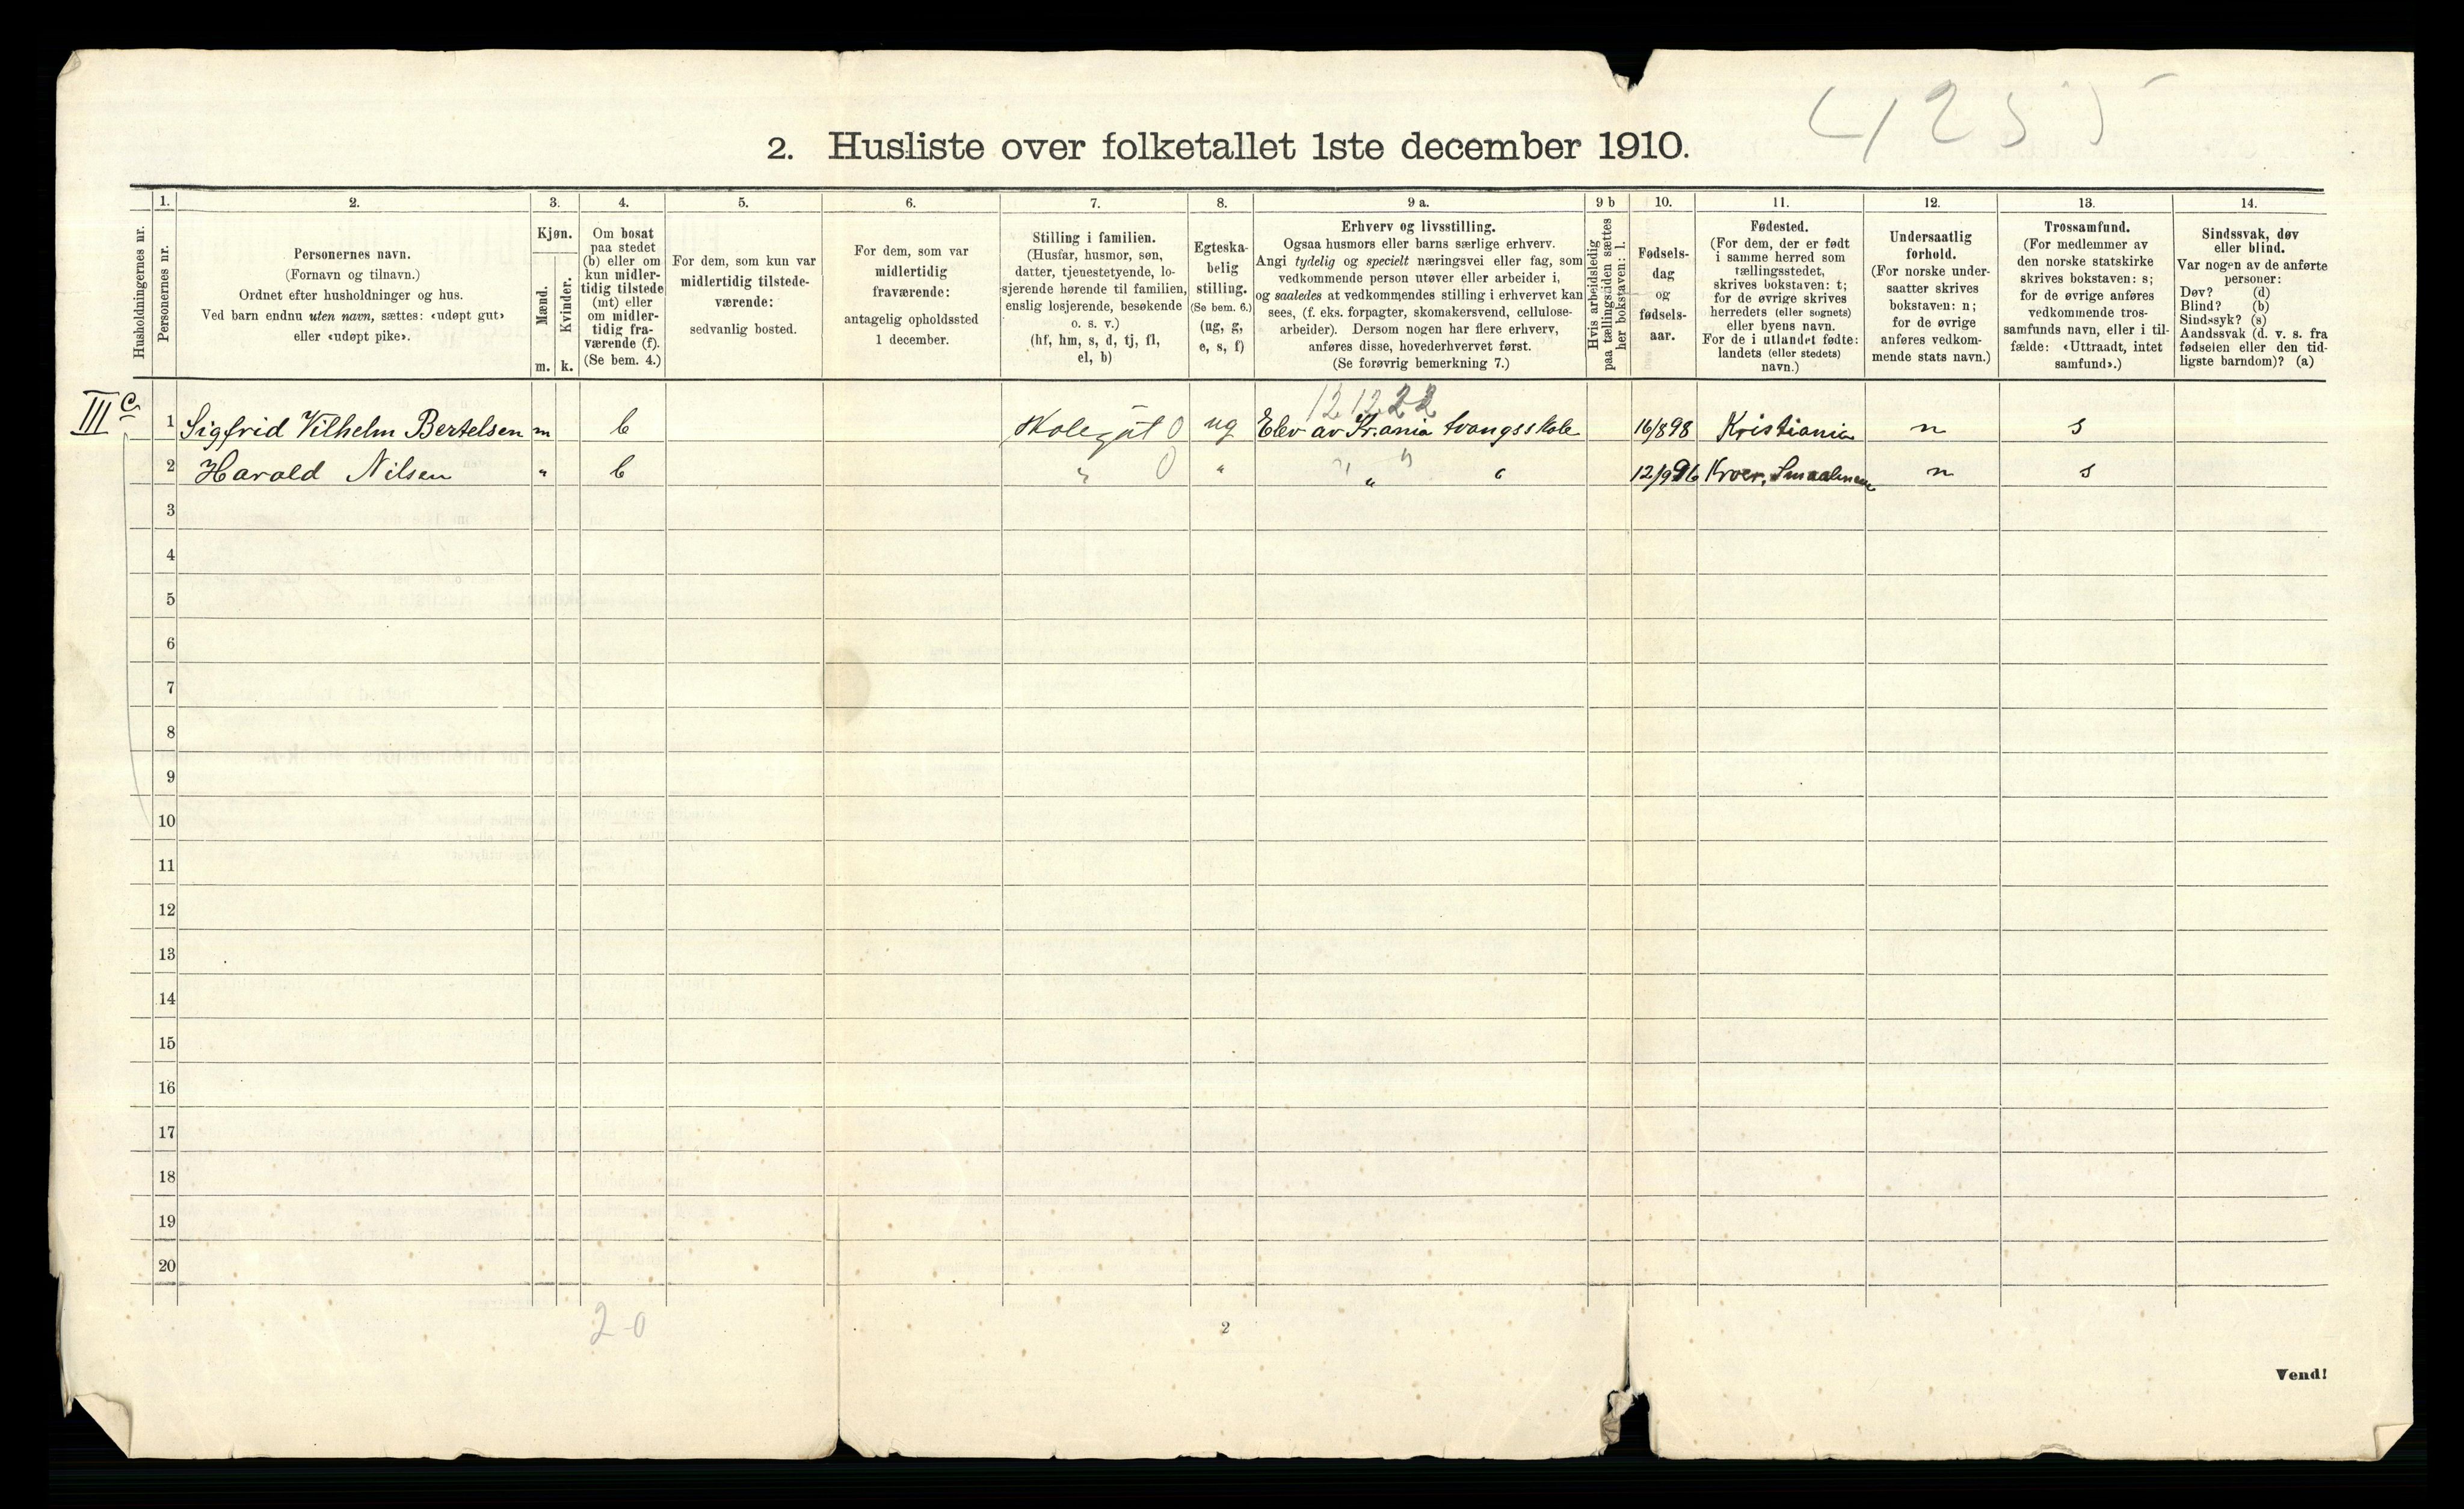 2. Husliste over folketallet 1ste december 1910.
Husholdningernes nr.
1.
Personernes nr.
2.
Personernes navn.
(Fornavn og tilnavn.)
Ordnet efter husholdninger og hus.
Ved barn endnu uten navn, sættes: «udøpt gut»
eller «udøpt pike».
3.
Kjøn.
Mænd.
Kvinder.
m. k.
4.
Om bosat
paa stedet
(b) eller om
kun midler-
tidig tilstede
(mt) eller
om midler-
tidig fra-
værende (f).
(Se bem. 4.)
5.
For dem, som kun var
midlertidig tilstede-
værende:
sedvanlig bosted.
6.
For dem, som var
midlertidig
fraværende:
antagelig opholdssted
1 december.
7.
Stilling i familien.
(Husfar, husmor, søn,
datter, tjenestetyende, lo-
sjerende hørende til familien,
enslig losjerende, besøkende
o. s. v.)
(hf, hm, s, d, tj, fl,
el, b)
8.
Egteska-
belig
stilling.
(Se bem. 6.)
(ug, g,
e, s, f)
9 a.
Erhverv og livsstilling.
Ogsaa husmors eller barns særlige erhverv.
Angi tydelig og specielt næringsvei eller fag, som
vedkommende person utøver eller arbeider i,
og saaledes at vedkommendes stilling i erhvervet kan
sees, (f. eks. forpagter, skomakersvend, cellulose-
arbeider). Dersom nogen har flere erhverv,
anføres disse, hovederhvervet først.
(Se forøvrig bemerkning 7.)
9 b
Hvis arbeidsledig
paa tællingstiden sættes
her bokstaven: l.
10.
Fødsels-
dag
og
fødsels-
aar.
11.
Fødested.
(For dem, der er født
i samme herred som
tællingsstedet,
skrives bokstaven: t;
for de øvrige skrives
herredets (eller sognets)
eller byens navn.
For de i utlandet fødte:
landets (eller stedets)
navn.)
12.
Undersaatlig
forhold.
(For norske under-
saatter skrives
bokstaven: n;
for de øvrige
anføres vedkom-
mende stats navn.)
13.
Trossamfund.
(For medlemmer av
den norske statskirke
skrives bokstaven: s;
for de øvrige anføres
vedkommende tros-
samfunds navn, eller i til-
fælde: «Uttraadt, intet
samfund».)
14.
Sindssvak, døv
eller blind.
Var nogen av de anførte
personer:
Døv? (d)
Blind? (b)
Sindssyk? (s)
Aandssvak (d. v. s. fra
fødselen eller den tid-
ligste barndom)? (a)
121222
III c 1 Sigfrid Vilhelm Bertelsen m b Skolegut 0 ug Elev av Kr.ania tvangsskole 16/898 Kristiania n s
2 Harald Nilsen " b " 0 " " " 12/996 Kroer, Smaalenene n s
3
4
5
6
7
8
9
10
11
12
13
14
15
16
17
18
19
20
2-0
2
Vend!